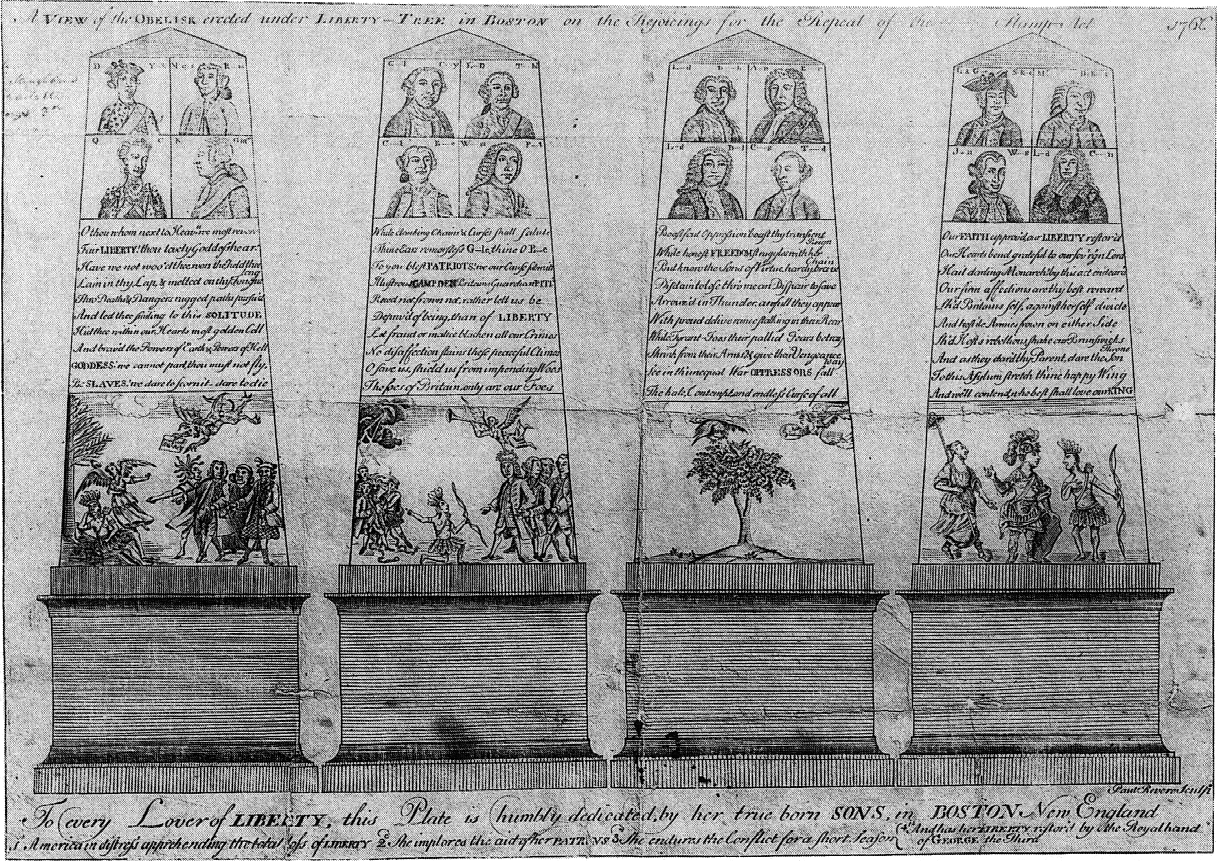 A VIEW of the OBELISK erected under LIBERTY-TREE in BOSTON on the Rejoicings for the Repeal of the Stamp Act 1766
D Y k M s R s
Q C K GM
O thou whom next to Heav'n we most revere
Fair LIBERTY! thou lovely Goddess hear!
Have we not woo'd thee, won thee, held thee long
Lain in thy Lap, & melted on thy Tongue
Thro Deaths & Dangers rugged paths pursu'd
And led thee smiling to this SOLITUDE
Hid thee within our Hearts most golden Cell
And brav'd the Powers of Earth & Powers of Hell
GODDESS! we cannot part, thou must not fly,
Be SLAVES! we dare to scorn it - dare to die
G l C y
C l B e W m P t
While clanking Chains & Curses shall salute
Thine Ears remorseless G—le, thine O B—e
To you blest PATRIOTS! we our Cause submit
Illustrous CAMPDEN Britains Guardian PITT
Reced not frown not, rather let us be
Depriv'd of being, than of LIBERTY
Let fraud or malice blacken all our Crimes
No disaffection stains these peaceful Climes
O save us, shield us from impending Woes
The foes of Britain only are our Foes
L d
C s T d
Boast foul Oppression boast thy transient Reign
While honest FREEDOM struggles with her Chain
But know the Sons of Virtue hardy brave
Disdain to lose thro mean Despair to save
Arrow'd in Thunder, awfull they appear
With proud deliverance stalking in their Rear
While Tyrant-Foes their pallid Fears betray
Shrink from their Arms, & give their Vengeance way
See in th' unequal War OPPRESSORS fall
The hate, Contempt, and endless Curse of all
J n W s L d C n
Our FAITH approv'd, our LIBERTY restor'd
Our Hearts bend grateful to our sov'rgn Lord
Hail darling Monarch! by this act endear'd
Our firm affections are thy best reward
Sh'd Britains self, against herself divide
And hostile Armies frown on either Side
Sh'd Hosts rebellious, shake our Brunswicks Throne
And as they dar'd thy Parent, dare the Son
To this Asylum stretch thine happy Wing
And we'll contend, who best shall love our KING
Paul Revere Sculp
To every Lover of LIBERTY, this Plate is humbly dedicated, by her true born SONS, in BOSTON New England
1 America in distress apprehending the total loss of LIBERTY 2 She implores the aid of her PATRONS 3 She endures the Conflict for a short Season 4 And has her LIBERTY restor'd by the Royal hand
of GEORGE the Third